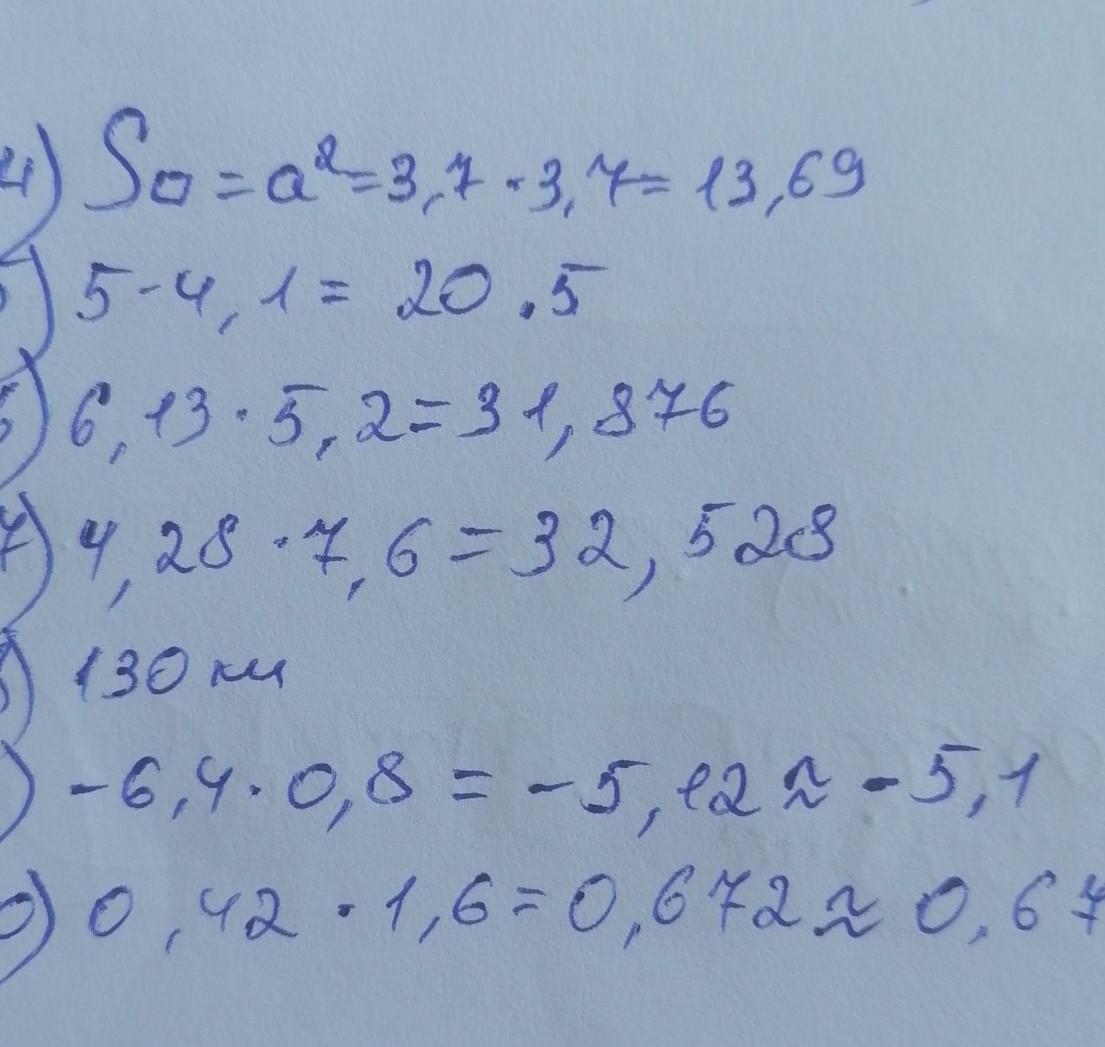 4) S□ = a² = 3,7 · 3,7 = 13,69
5) 5 - 4,1 = 20.5
6) 6,13 · 5,2 = 31,876
7) 4,28 · 7,6 = 32,528
) 130 км
) -6,4 · 0,8 = -5,12 ≈ -5,1
0) 0,42 · 1,6 = 0,672 ≈ 0,67